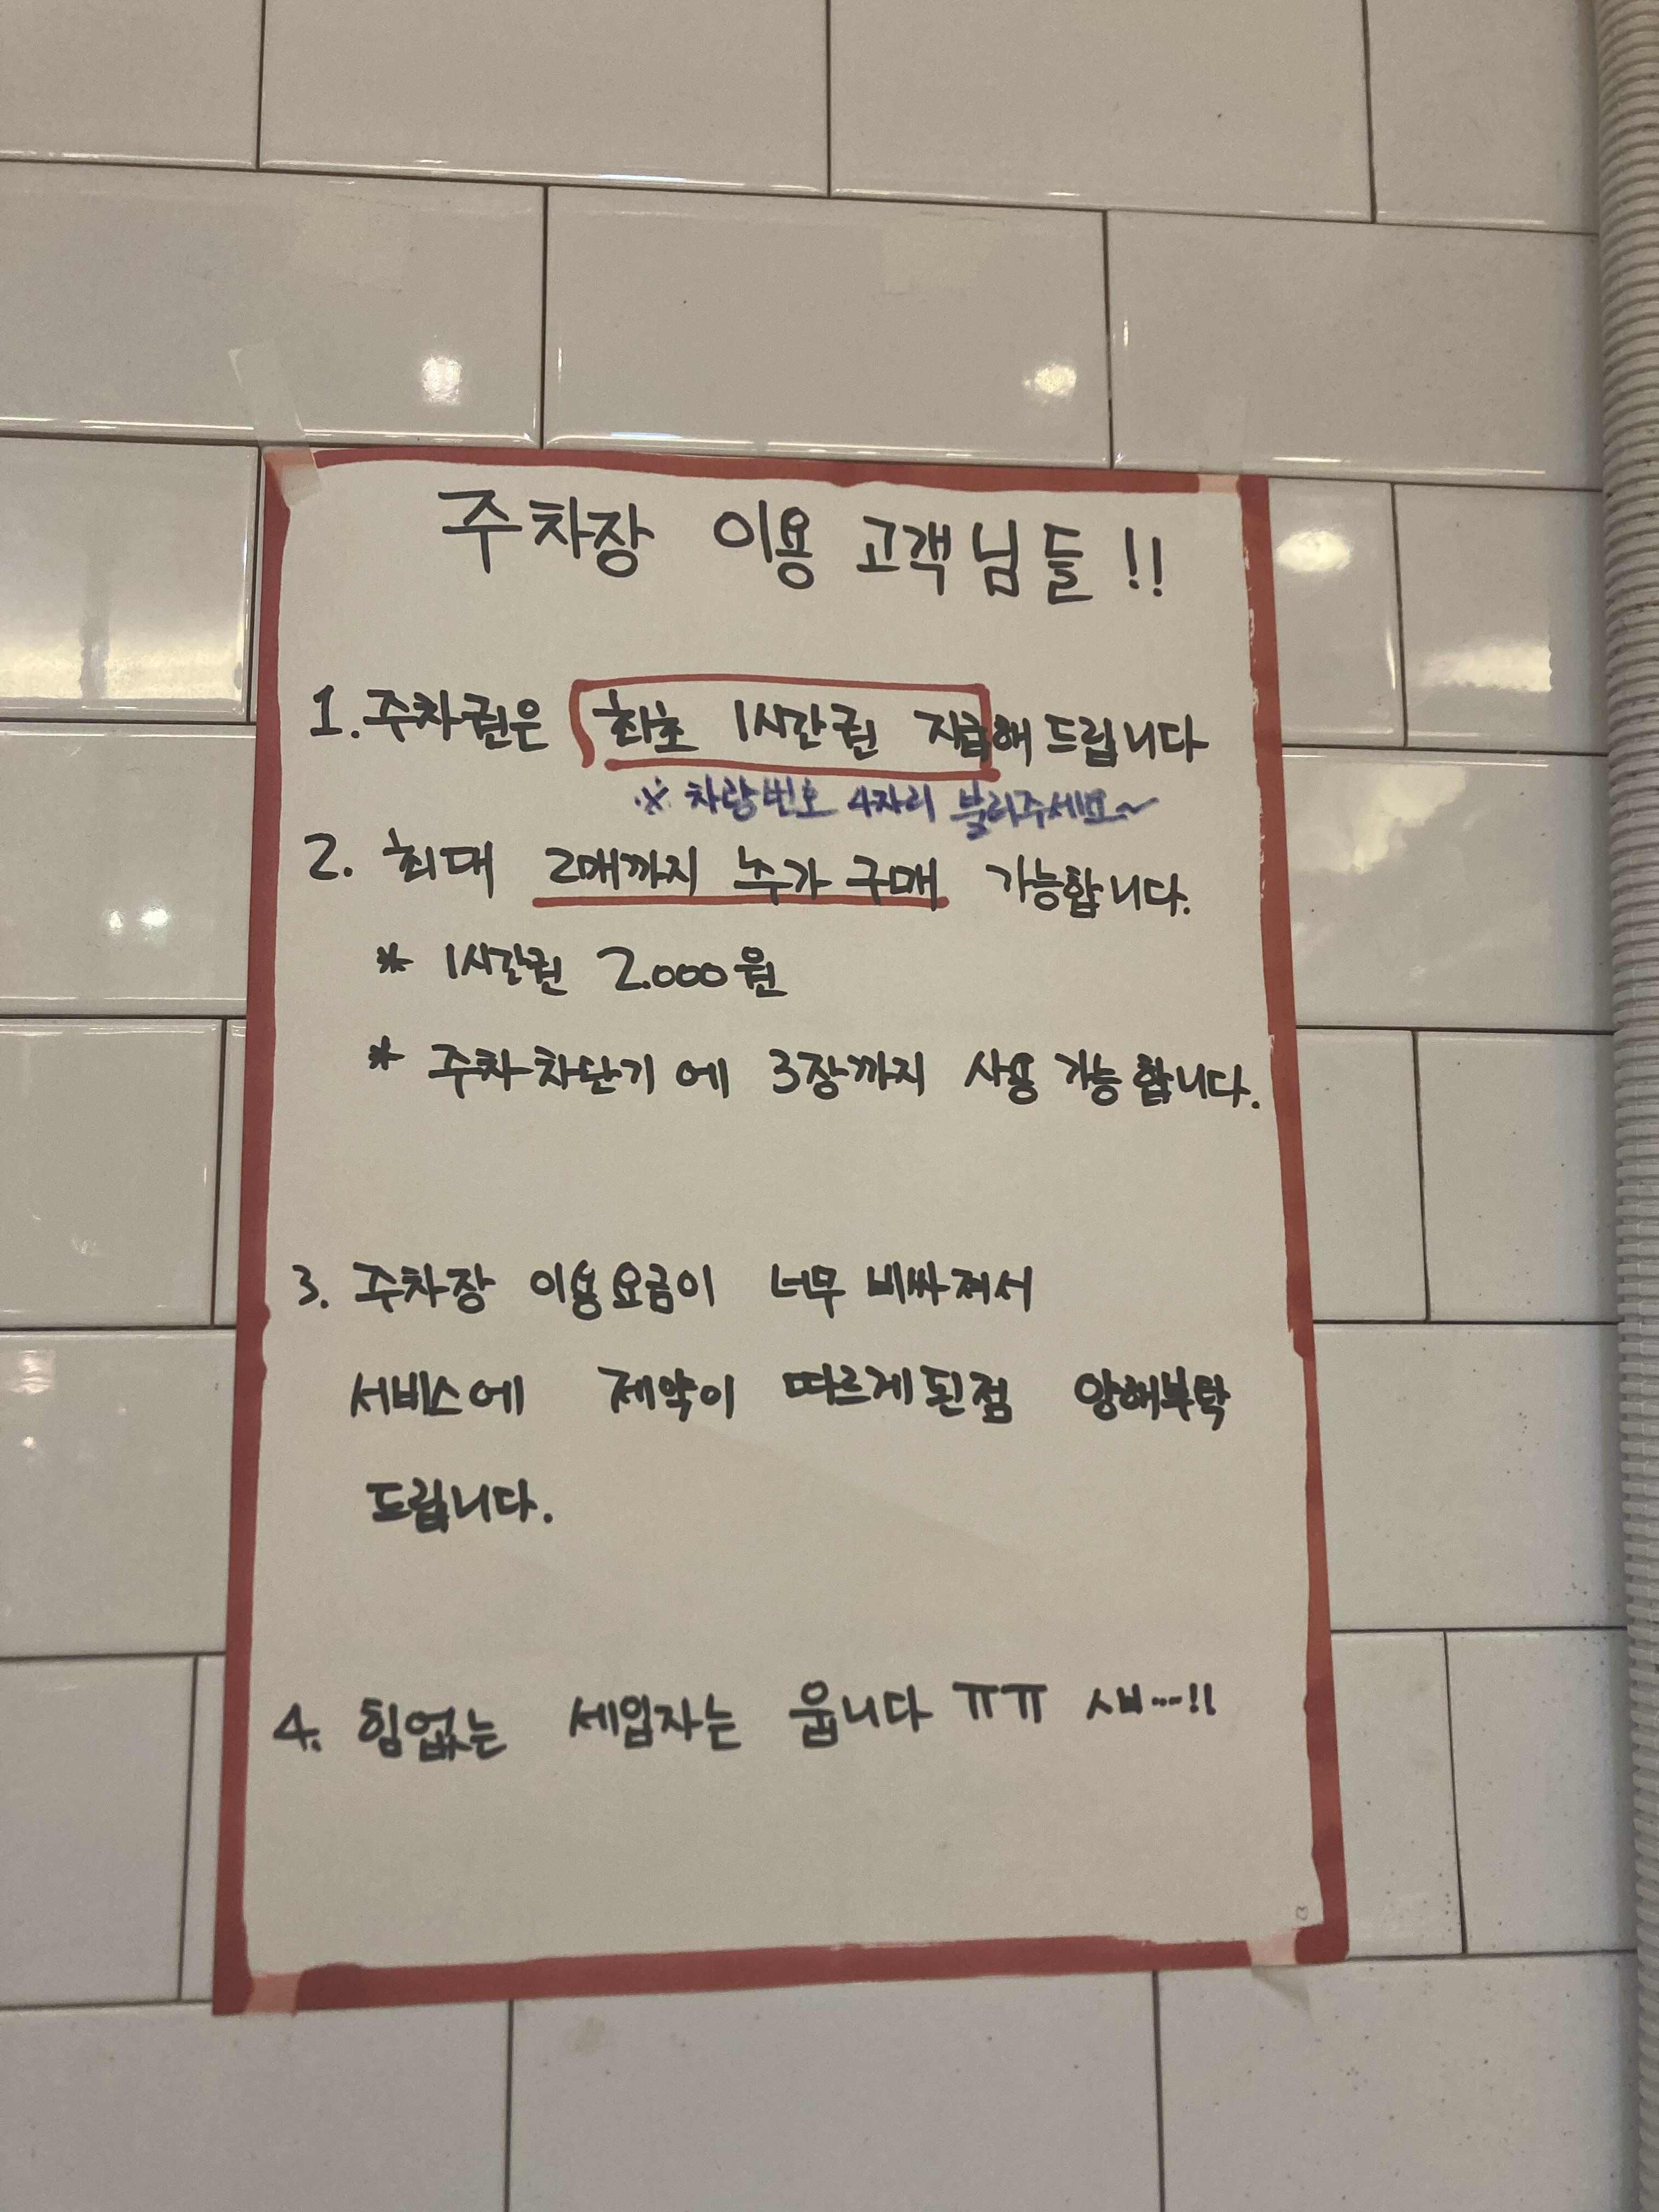 주차장 이용 고객님들!!
1. 주차권은 최초 1시간권 지급해 드립니다
※ 차량번호 4자리 불러주세요~
2. 최대 2매까지 추가 구매 가능합니다.
* 1시간권 2.000원
* 주차차단기에 3장까지 사용 가능합니다.
3. 주차장 이용요금이 너무 비싸져서
서비스에 제약이 따르게된점 양해부탁
드립니다.
4. 힘없는 세입자는 웁니다 ㅠㅠ ㅅㅂ...!!